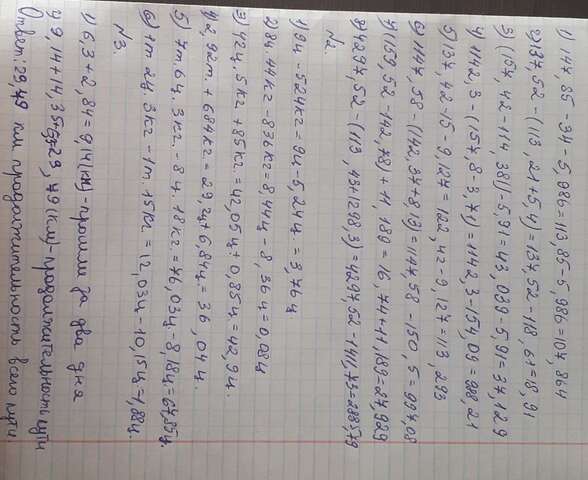 1) 147, 85 - 34 - 5,986 = 113,85 - 5,986 = 107,864
2) 137, 52 - (113, 21 + 5,4) = 137,52 - 118,61 = 18,91
3) (157, 42 - 114, 381) - 5,91 = 43, 039 - 5,91 = 37,129
4) 1142,3 - (157,8 - 3,71) = 1142,3 - 154,09 = 988,21
5) 137, 42 - 15 - 9,127 = 122,42 - 9,127 = 113,293
6) 1147,58 - (142,37 + 8,13) = 1147,58 - 150,5 = 997,08
7) (159, 52 - 142,78) + 11,189 = 16,74 + 11,189 = 27,929
8) 4297,52 - (113, 43 + 1298,3) = 4297,52 - 1411,73 = 2885,79
№2.
1) 9ц - 524кг = 9ц - 5,24ц = 3,76ц
2) 84, 44кг - 836кг = 8,444ц - 8,36ц = 0,084
3) 42ц, 5кг + 85кг = 42,05ц + 0,85ц = 42,9ц.
4) 2,92т + 684кг = 29,2ц + 6,84ц = 36,04ц
5) 7т 6ц. 3кг - 8ц. 18кг = 76,03ц - 8,18ц = 67,85ц
6) 1т 2ц 3кг - 1т. 15кг = 12,03ц - 10,15ц = 1,88ц.
№3.
1) 6,3 + 2,84 = 9,14 (км) - прошли за два дня
2) 9,14 + 14, 35 = 29,49 (км) - продолжительность пути
Ответ: 29,49 км продолжительность всего пути